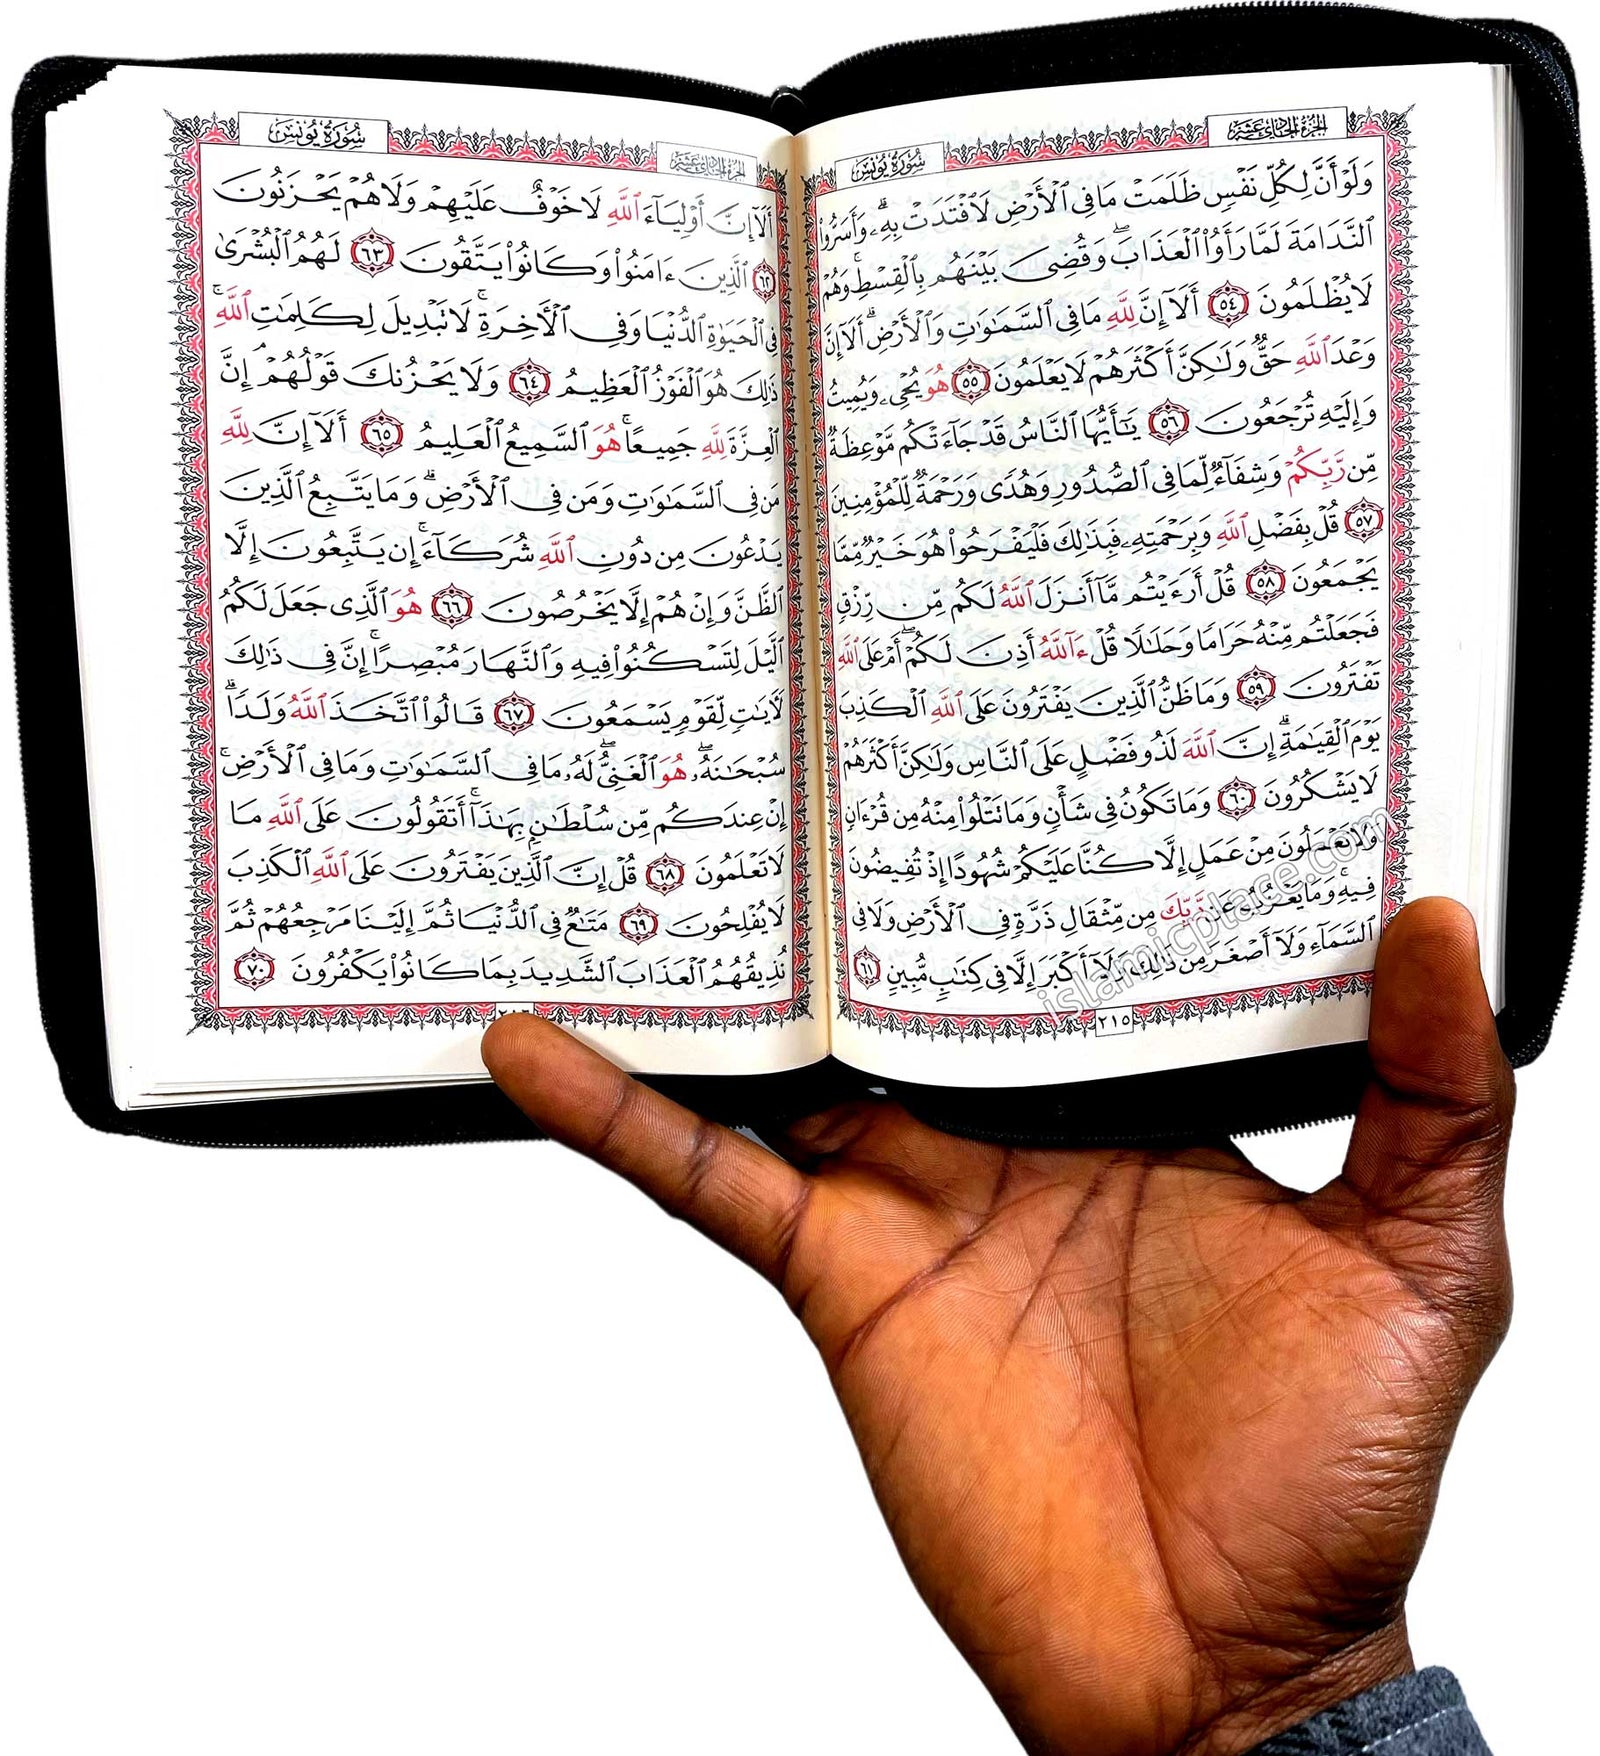 الجزء الحادي عشر
سورة يونس
وَلَوْ أَنَّ لِكُلِّ نَفْسٍ ظَلَمَتْ مَا فِى ٱلْأَرْضِ لَٱفْتَدَتْ بِهِۦۗ وَأَسَرُّوا۟
ٱلنَّدَامَةَ لَمَّا رَأَوُا۟ ٱلْعَذَابَۖ وَقُضِىَ بَيْنَهُم بِٱلْقِسْطِۚ وَهُمْ
لَا يُظْلَمُونَ ٥٤ أَلَآ إِنَّ لِلَّهِ مَا فِى ٱلسَّمَٰوَٰتِ وَٱلْأَرْضِۗ أَلَآ إِنَّ
وَعْدَ ٱللَّهِ حَقٌّ وَلَٰكِنَّ أَكْثَرَهُمْ لَا يَعْلَمُونَ ٥٥ هُوَ يُحْىِۦ وَيُمِيتُ
وَإِلَيْهِ تُرْجَعُونَ ٥٦ يَٰٓأَيُّهَا ٱلنَّاسُ قَدْ جَآءَتْكُم مَّوْعِظَةٌ
مِّن رَّبِّكُمْ وَشِفَآءٌ لِّمَا فِى ٱلصُّدُورِ وَهُدًى وَرَحْمَةٌ لِّلْمُؤْمِنِينَ
٥٧ قُلْ بِفَضْلِ ٱللَّهِ وَبِرَحْمَتِهِۦ فَبِذَٰلِكَ فَلْيَفْرَحُوا۟ هُوَ خَيْرٌ مِّمَّا
يَجْمَعُونَ ٥٨ قُلْ أَرَءَيْتُم مَّآ أَنزَلَ ٱللَّهُ لَكُم مِّن رِّزْقٍ
فَجَعَلْتُم مِّنْهُ حَرَامًا وَحَلَٰلًا قُلْ ءَآللَّهُ أَذِنَ لَكُمْۖ أَمْ عَلَى ٱللَّهِ
تَفْتَرُونَ ٥٩ وَمَا ظَنُّ ٱلَّذِينَ يَفْتَرُونَ عَلَى ٱللَّهِ ٱلْكَذِبَ
يَوْمَ ٱلْقِيَٰمَةِۗ إِنَّ ٱللَّهَ لَذُو فَضْلٍ عَلَى ٱلنَّاسِ وَلَٰكِنَّ أَكْثَرَهُمْ
لَا يَشْكُرُونَ ٦٠ وَمَا تَكُونُ فِى شَأْنٍ وَمَا تَتْلُوا۟ مِنْهُ مِن قُرْءَانٍ
وَلَا تَعْمَلُونَ مِنْ عَمَلٍ إِلَّا كُنَّا عَلَيْكُمْ شُهُودًا إِذْ تُفِيضُونَ
فِيهِۚ وَمَا يَعْزُبُ عَن رَّبِّكَ مِن مِّثْقَالِ ذَرَّةٍ فِى ٱلْأَرْضِ وَلَا فِى
ٱلسَّمَآءِ وَلَآ أَصْغَرَ مِن ذَٰلِكَ وَلَآ أَكْبَرَ إِلَّا فِى كِتَٰبٍ مُّبِينٍ ٦١
٢١٥
islamicplace.com
الجزء الحادي عشر
سورة يونس
أَلَآ إِنَّ أَوْلِيَآءَ ٱللَّهِ لَا خَوْفٌ عَلَيْهِمْ وَلَا هُمْ يَحْزَنُونَ
٦٢ ٱلَّذِينَ ءَامَنُوا۟ وَكَانُوا۟ يَتَّقُونَ ٦٣ لَهُمُ ٱلْبُشْرَىٰ
فِى ٱلْحَيَوٰةِ ٱلدُّنْيَا وَفِى ٱلْأَخِرَةِۚ لَا تَبْدِيلَ لِكَلِمَٰتِ ٱللَّهِۚ
ذَٰلِكَ هُوَ ٱلْفَوْزُ ٱلْعَظِيمُ ٦٤ وَلَا يَحْزُنكَ قَوْلُهُمْۘ إِنَّ
ٱلْعِزَّةَ لِلَّهِ جَمِيعًاۚ هُوَ ٱلسَّمِيعُ ٱلْعَلِيمُ ٦٥ أَلَآ إِنَّ لِلَّهِ
مَن فِى ٱلسَّمَٰوَٰتِ وَمَن فِى ٱلْأَرْضِۗ وَمَا يَتَّبِعُ ٱلَّذِينَ
يَدْعُونَ مِن دُونِ ٱللَّهِ شُرَكَآءَۚ إِن يَتَّبِعُونَ إِلَّا
ٱلظَّنَّ وَإِنْ هُمْ إِلَّا يَخْرُصُونَ ٦٦ هُوَ ٱلَّذِى جَعَلَ لَكُمُ
ٱلَّيْلَ لِتَسْكُنُوا۟ فِيهِ وَٱلنَّهَارَ مُبْصِرًاۚ إِنَّ فِى ذَٰلِكَ
لَءَايَٰتٍ لِّقَوْمٍ يَسْمَعُونَ ٦٧ قَالُوا۟ ٱتَّخَذَ ٱللَّهُ وَلَدًاۗ
سُبْحَٰنَهُۥۖ هُوَ ٱلْغَنِىُّۖ لَهُۥ مَا فِى ٱلسَّمَٰوَٰتِ وَمَا فِى ٱلْأَرْضِۚ
إِنْ عِندَكُم مِّن سُلْطَٰنٍۭ بِهَٰذَآۚ أَتَقُولُونَ عَلَى ٱللَّهِ مَا
لَا تَعْلَمُونَ ٦٨ قُلْ إِنَّ ٱلَّذِينَ يَفْتَرُونَ عَلَى ٱللَّهِ ٱلْكَذِبَ
لَا يُفْلِحُونَ ٦٩ مَتَٰعٌ فِى ٱلدُّنْيَا ثُمَّ إِلَيْنَا مَرْجِعُهُمْ ثُمَّ
نُذِيقُهُمُ ٱلْعَذَابَ ٱلشَّدِيدَ بِمَا كَانُوا۟ يَكْفُرُونَ ٧٠